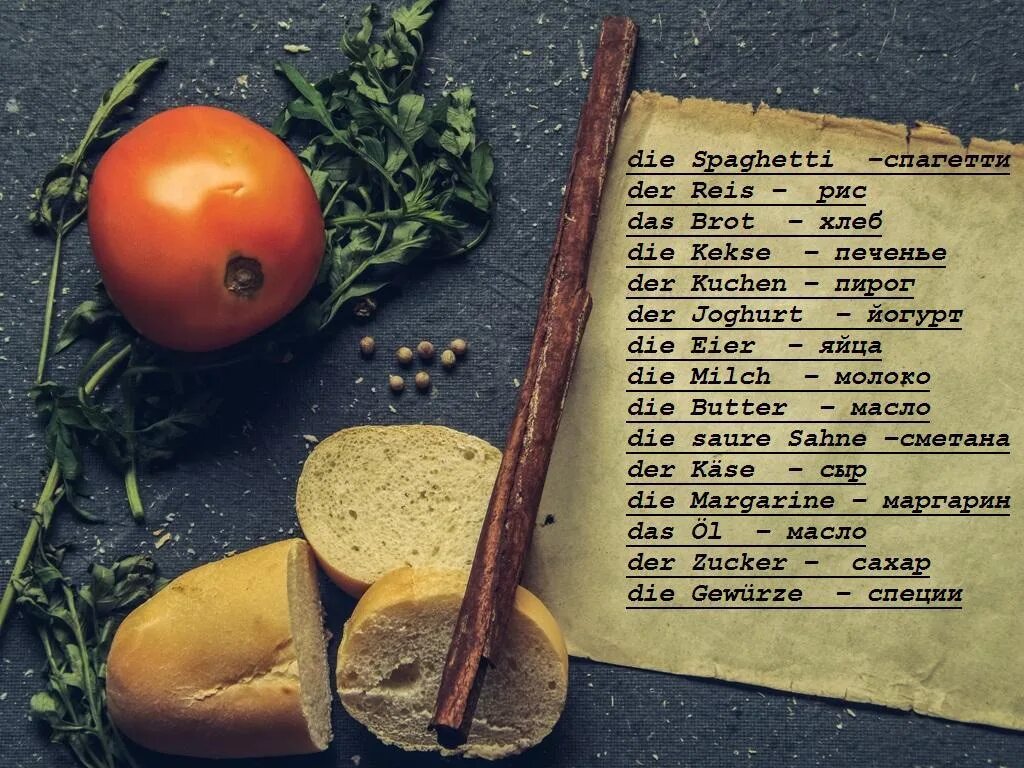 die Spaghetti -спагетти
der Reis - рис
das Brot - хлеб
die Kekse - печенье
der Kuchen - пирог
der Joghurt - йогурт
die Eier - яйца
die Milch - молоко
die Butter - масло
die saure Sahne -сметана
der Käse - сыр
die Margarine - маргарин
das Öl - масло
der Zucker - сахар
die Gewürze - специи